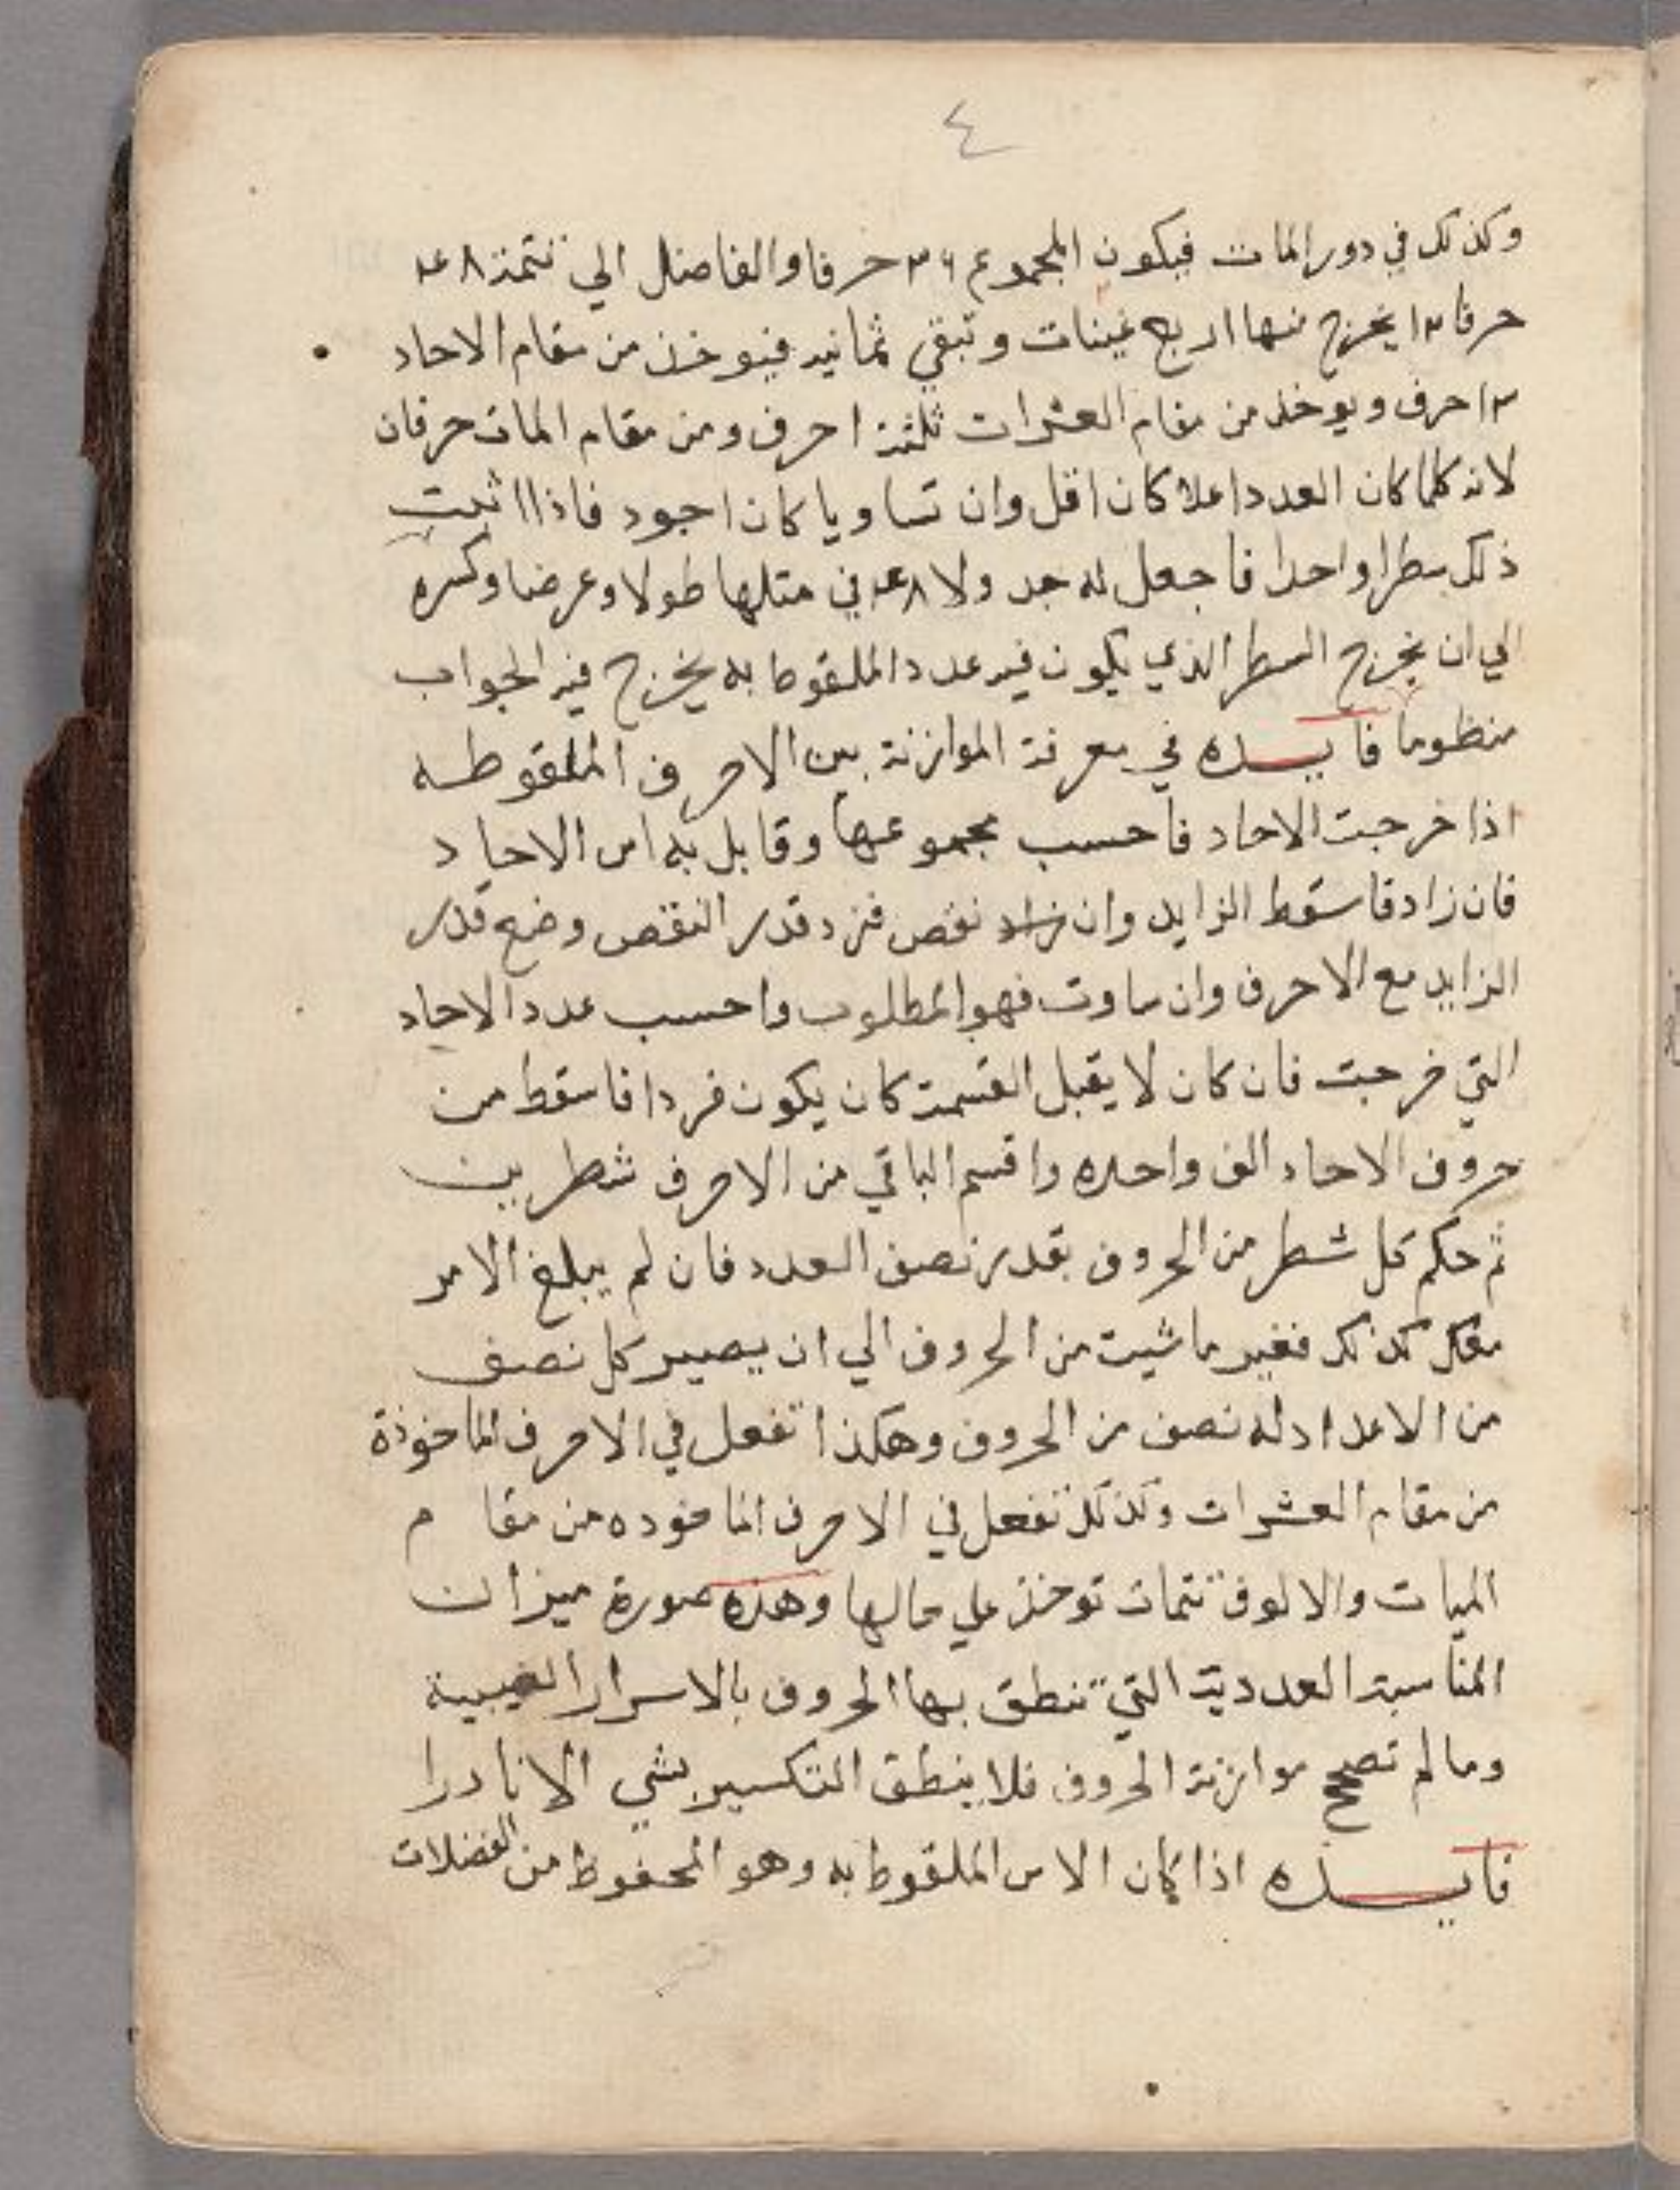 ٤
وكذلك في دور المات فيكون المجموع ٣٦ حرفا والفاضل الي تتمة ٤٨
حرفا ١٢ يخرج منها اربع غينات وتبقي ثمانيه فيوخذ من مقام الاحاد
٣ احرف ويوخذ من مقام العشرات ثلثة احرف ومن مقام المات حرفان
لانه كلما كان العدد اعلا كان اقل وان تساويا كان اجود فاذا اثبت
ذلك سطرا واحدا فاجعل له جدولا ٤٨ في مثلها طولا وعرضا وكسره
الي ان يخرج السطر الذي يكون فيه عدد الملقوط به يخرج فيه الجواب
منظوما فايـــده في معرفة الموازنة بين الاحرف الملقوطه
اذا خرجت الاحاد فاحسب مجموعها وقابل به اس الاحاد
فان زاد فاسقط الزايد وان زاد نقص فزد قدر النقص وضع قدر
الزايد مع الاحرف وان ساوت فهو المطلوب واحسب عدد الاحاد
التي خرجت فان كان لا يقبل القسمة كان يكون فردا فاسقط من
حروف الاحاد الف واحده واقسم الباقي من الاحرف شطرين
ثم حكم كل شطر من الحروف بقدر نصف العدد فان لم يبلغ الامر
معك كذلك فغير ما شيت من الحروف الي ان يصير كل نصف
من الاعداد له نصف من الحروف وهكذا تفعل في الاحرف الماخوذة
من مقام العشرات وكذلك تفعل في الاحرف الماخوده من مقام
الميات والالوف تتمات توخذ علي حالها وهذه صورة ميزان
المناسبة العددية التي تنطق بها الحروف بالاسرار الغيبية
وما لم تصحح موازنة الحروف فلا ينطق التكسير بشي الا نادرا
فايـــده اذا كان الاس الملقوط به وهو المحفوظ من الفضلات